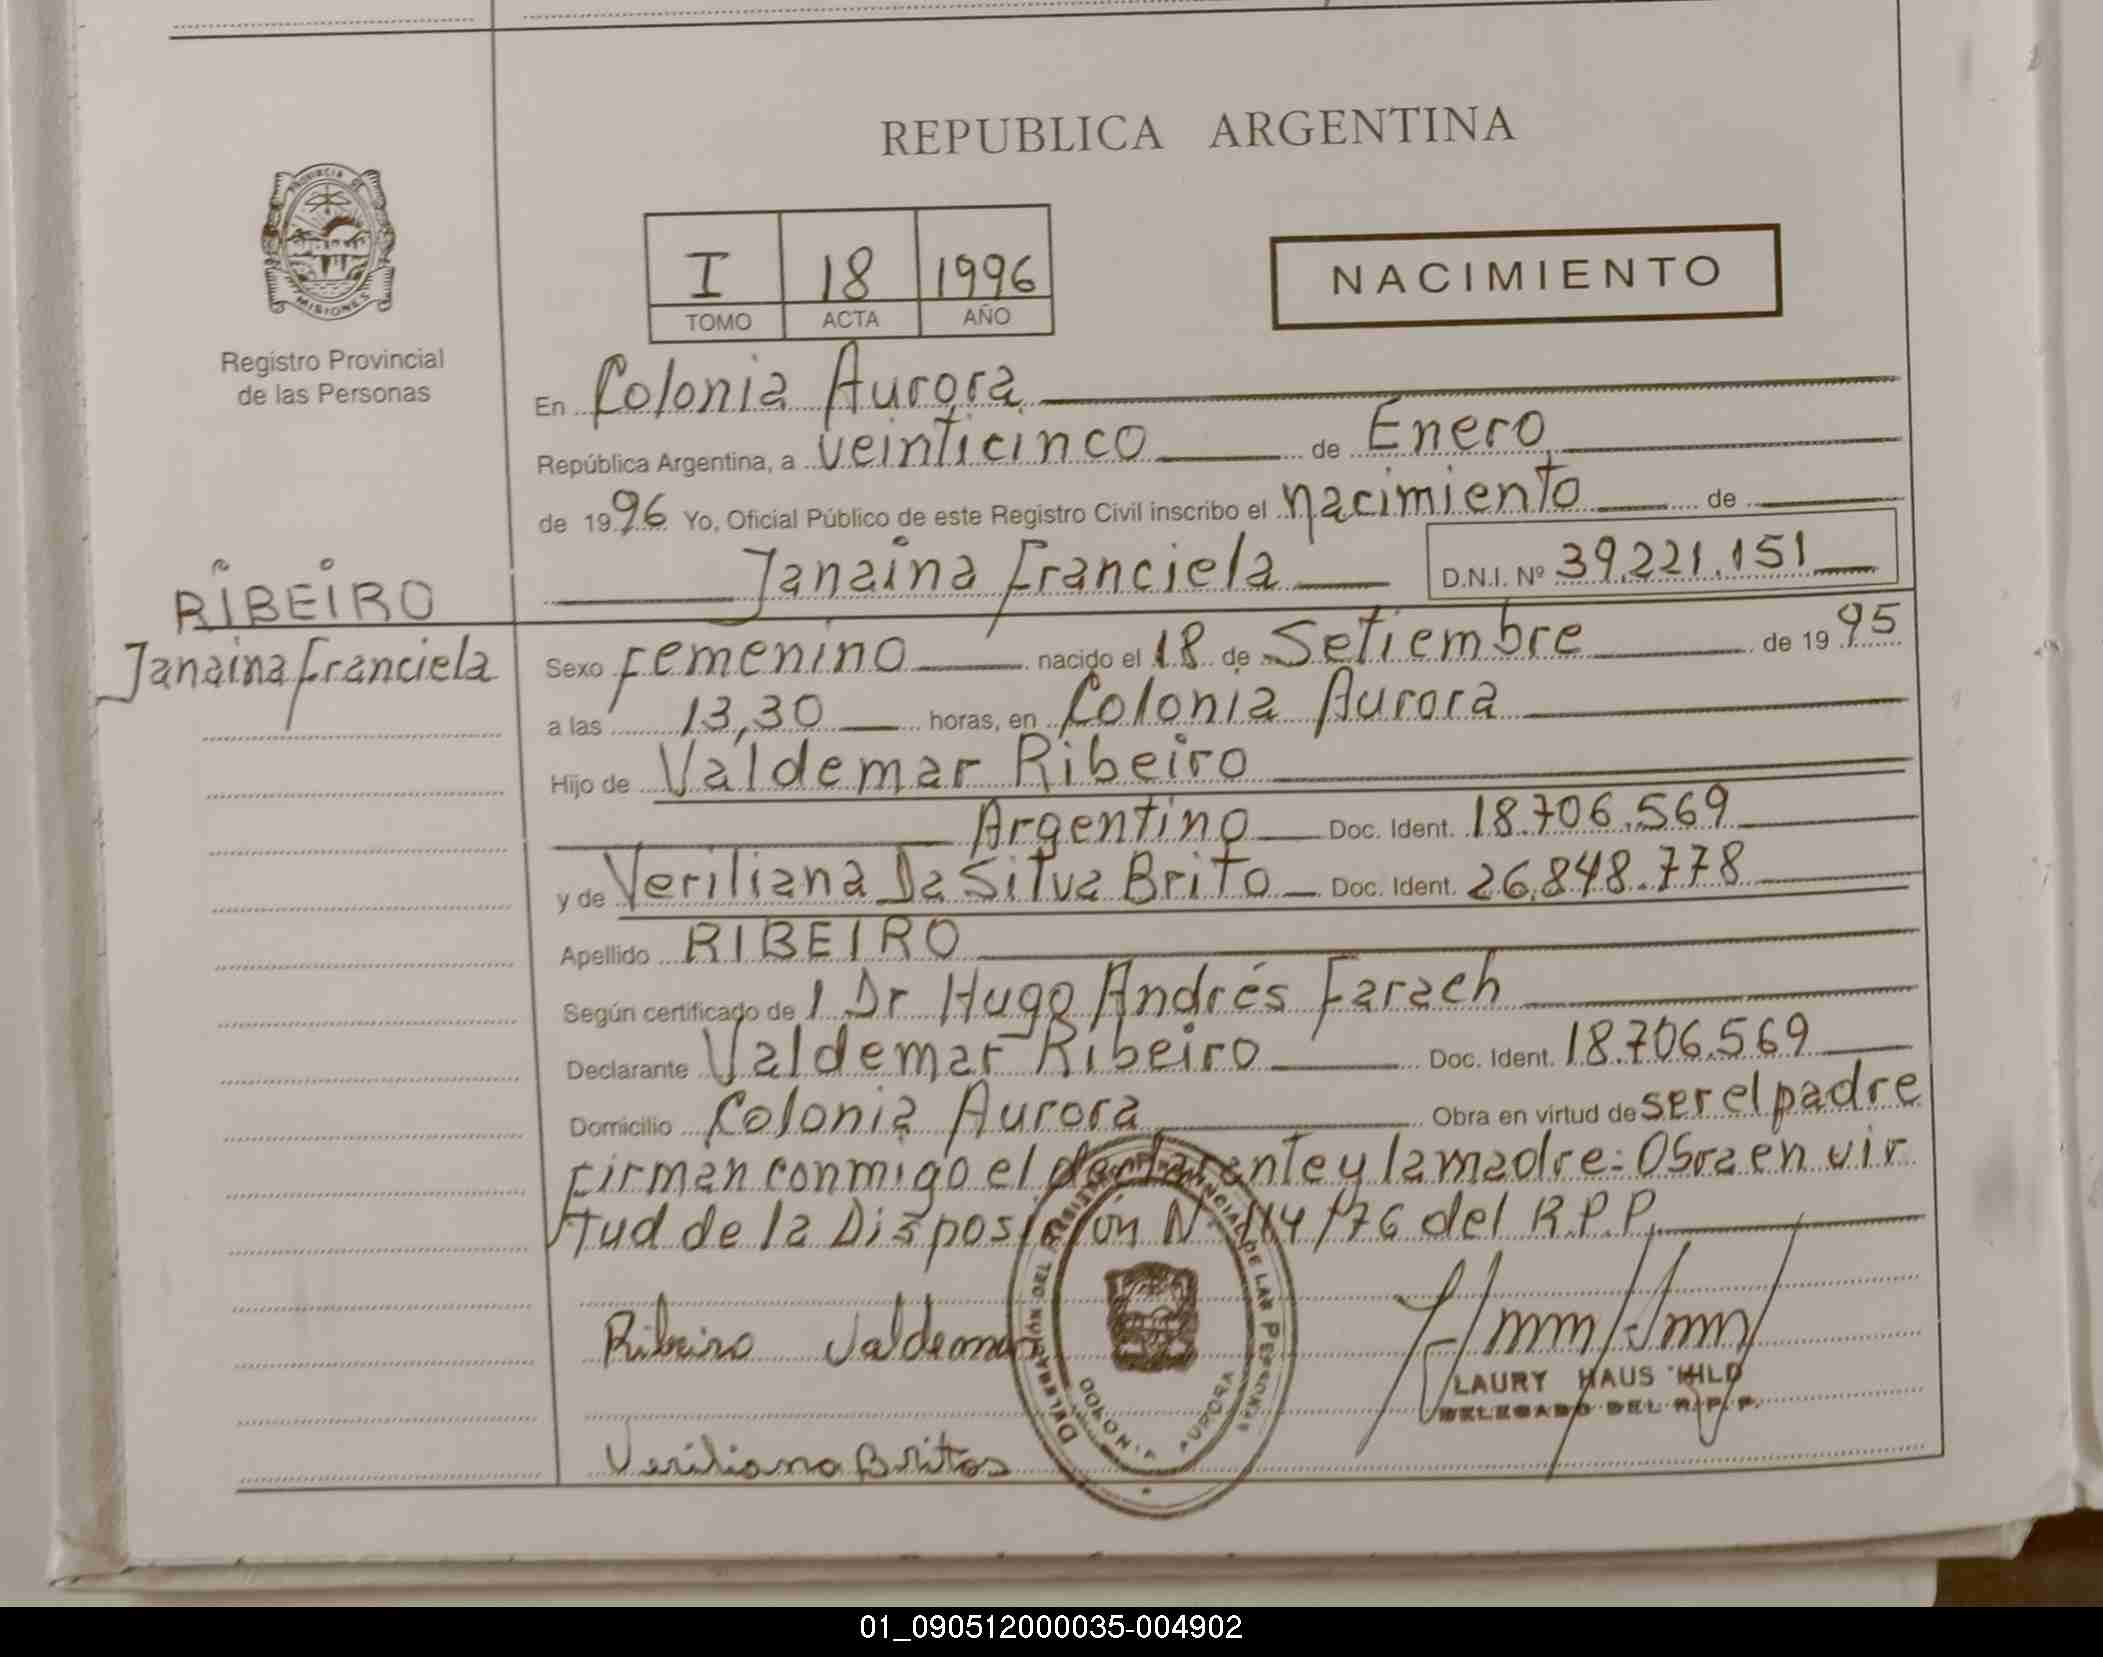 REPUBLICA ARGENTINA
PROVINCIA DE
MISIONES
Registro Provincial
de las Personas
I 18 1996
TOMO ACTA AÑO
NACIMIENTO
En Colonia Aurora
República Argentina, a veinticinco de Enero
de 1996 Yo, Oficial Público de este Registro Civil inscribo el nacimiento de
Janaina Franciela D.N.I. Nº 39.221.151
RIBEIRO
Janaina Franciela
Sexo Femenino nacido el 18 de Setiembre de 1995
a las 13,30 horas, en Colonia Aurora
Hijo de Valdemar Ribeiro
Argentino Doc. Ident. 18.706.569
y de Veriliana Da Silva Brito Doc. Ident. 26.848.778
Apellido RIBEIRO
Según certificado de l Dr Hugo Andrés Farach
Declarante Valdemar Ribeiro Doc. Ident. 18.706.569
Domicilio Colonia Aurora Obra en virtud de ser el padre
Firman conmigo el declarante y la madre: Obra en vir
tud de la Disposición Nº 114/76 del R.P.P.
Ribeiro Valdemar
LAURY HAUS HILD
DELEGADO DEL R.P.P.
Veriliana Britos
DELEGACION DEL REGISTRO PROVINCIAL DE LAS PERSONAS
COLONIA AURORA
01_090512000035-004902